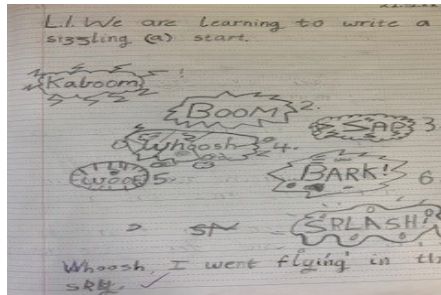 L.I. We are learning to write a
sizzling (a) start.
Kaboom! 1
BOOM 2.
ZAP 3
Whoosh 4.
woof 5.
BARK! 6
SPLASH!
Whoosh, I went flying in th
sky.